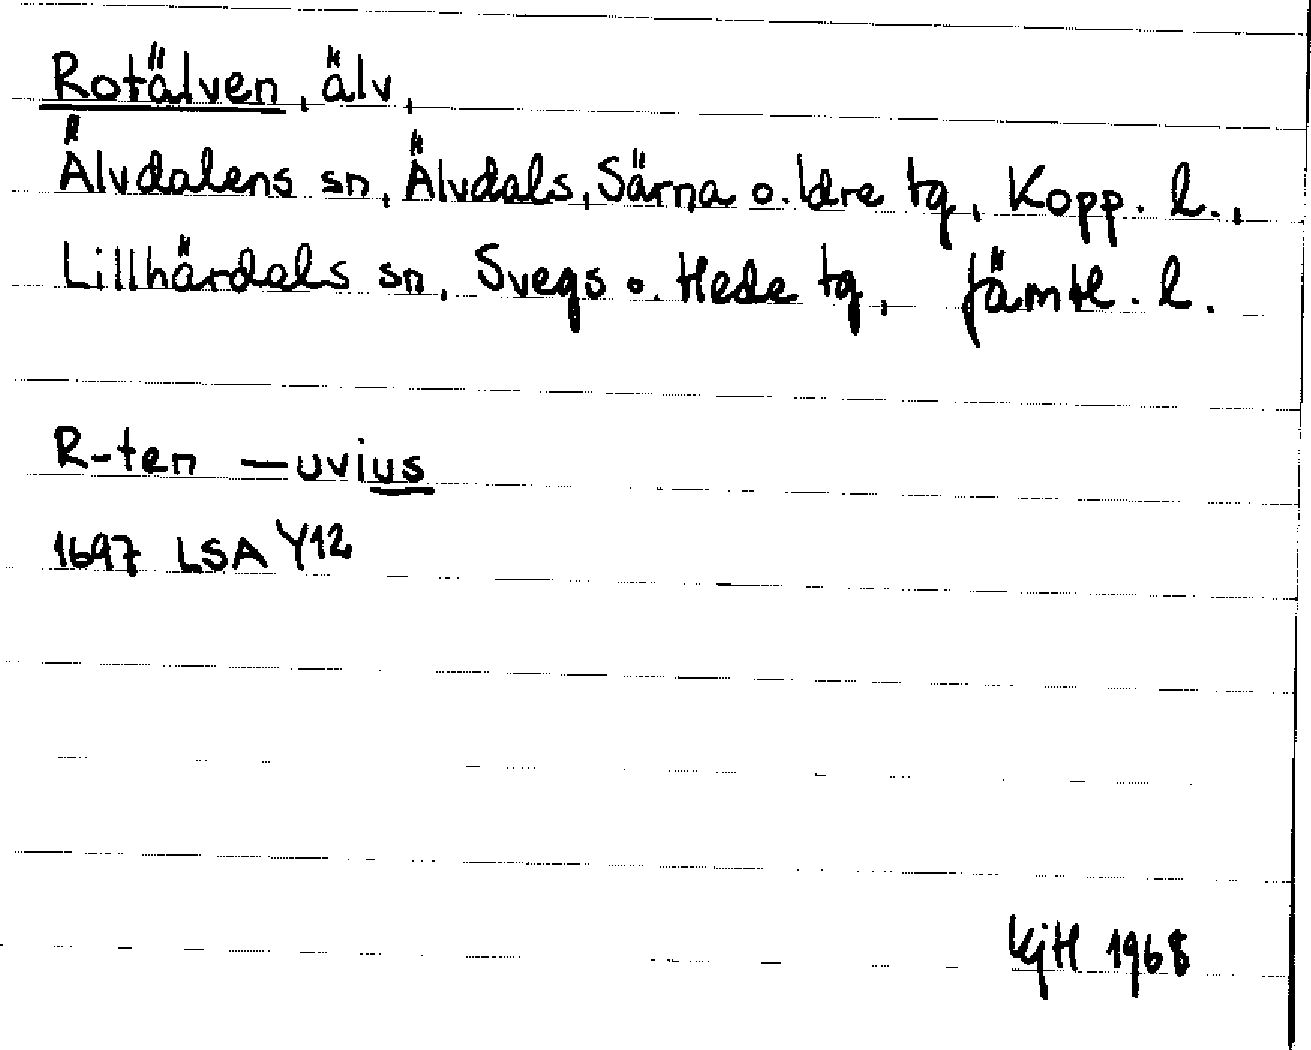 Rotälven, älv,
Älvdalens sn, Älvdals, Särna o. Idre tg, Kopp. l.,
Lillhärdals sn, Svegs o. Hede tg, Jämtl. l.
R-ten — uvius
1697 LSA Y12
1968